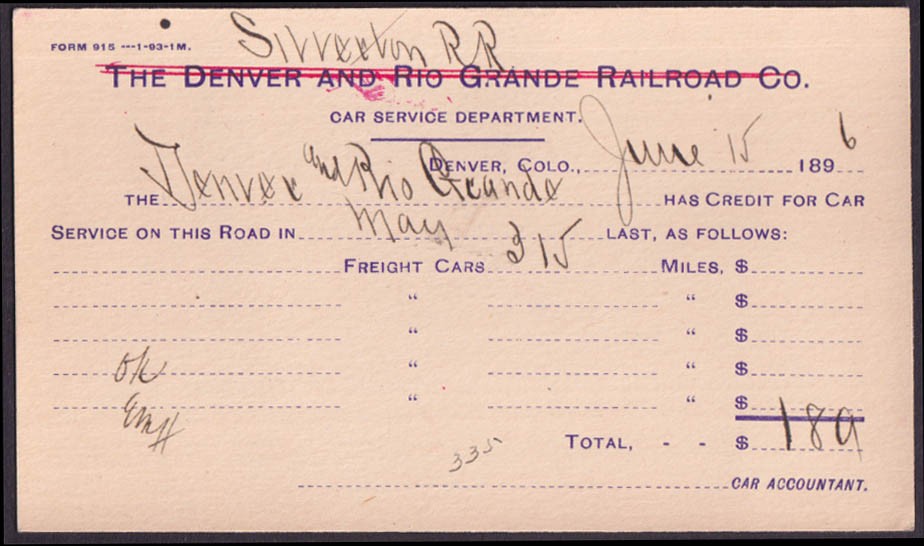 Silverton RR
FORM 915 ---1-93-1M.
THE DENVER AND RIO GRANDE RAILROAD CO.
CAR SERVICE DEPARTMENT.
DENVER, COLO., June 15 1896
THE Denver and Rio Grande HAS CREDIT FOR CAR
SERVICE ON THIS ROAD IN May LAST, AS FOLLOWS:
FREIGHT CARS 315 MILES, $
“ “ $
“ “ $
“ “ $
“ “ $
OK
EMH
TOTAL, - - $ 189
335
CAR ACCOUNTANT.